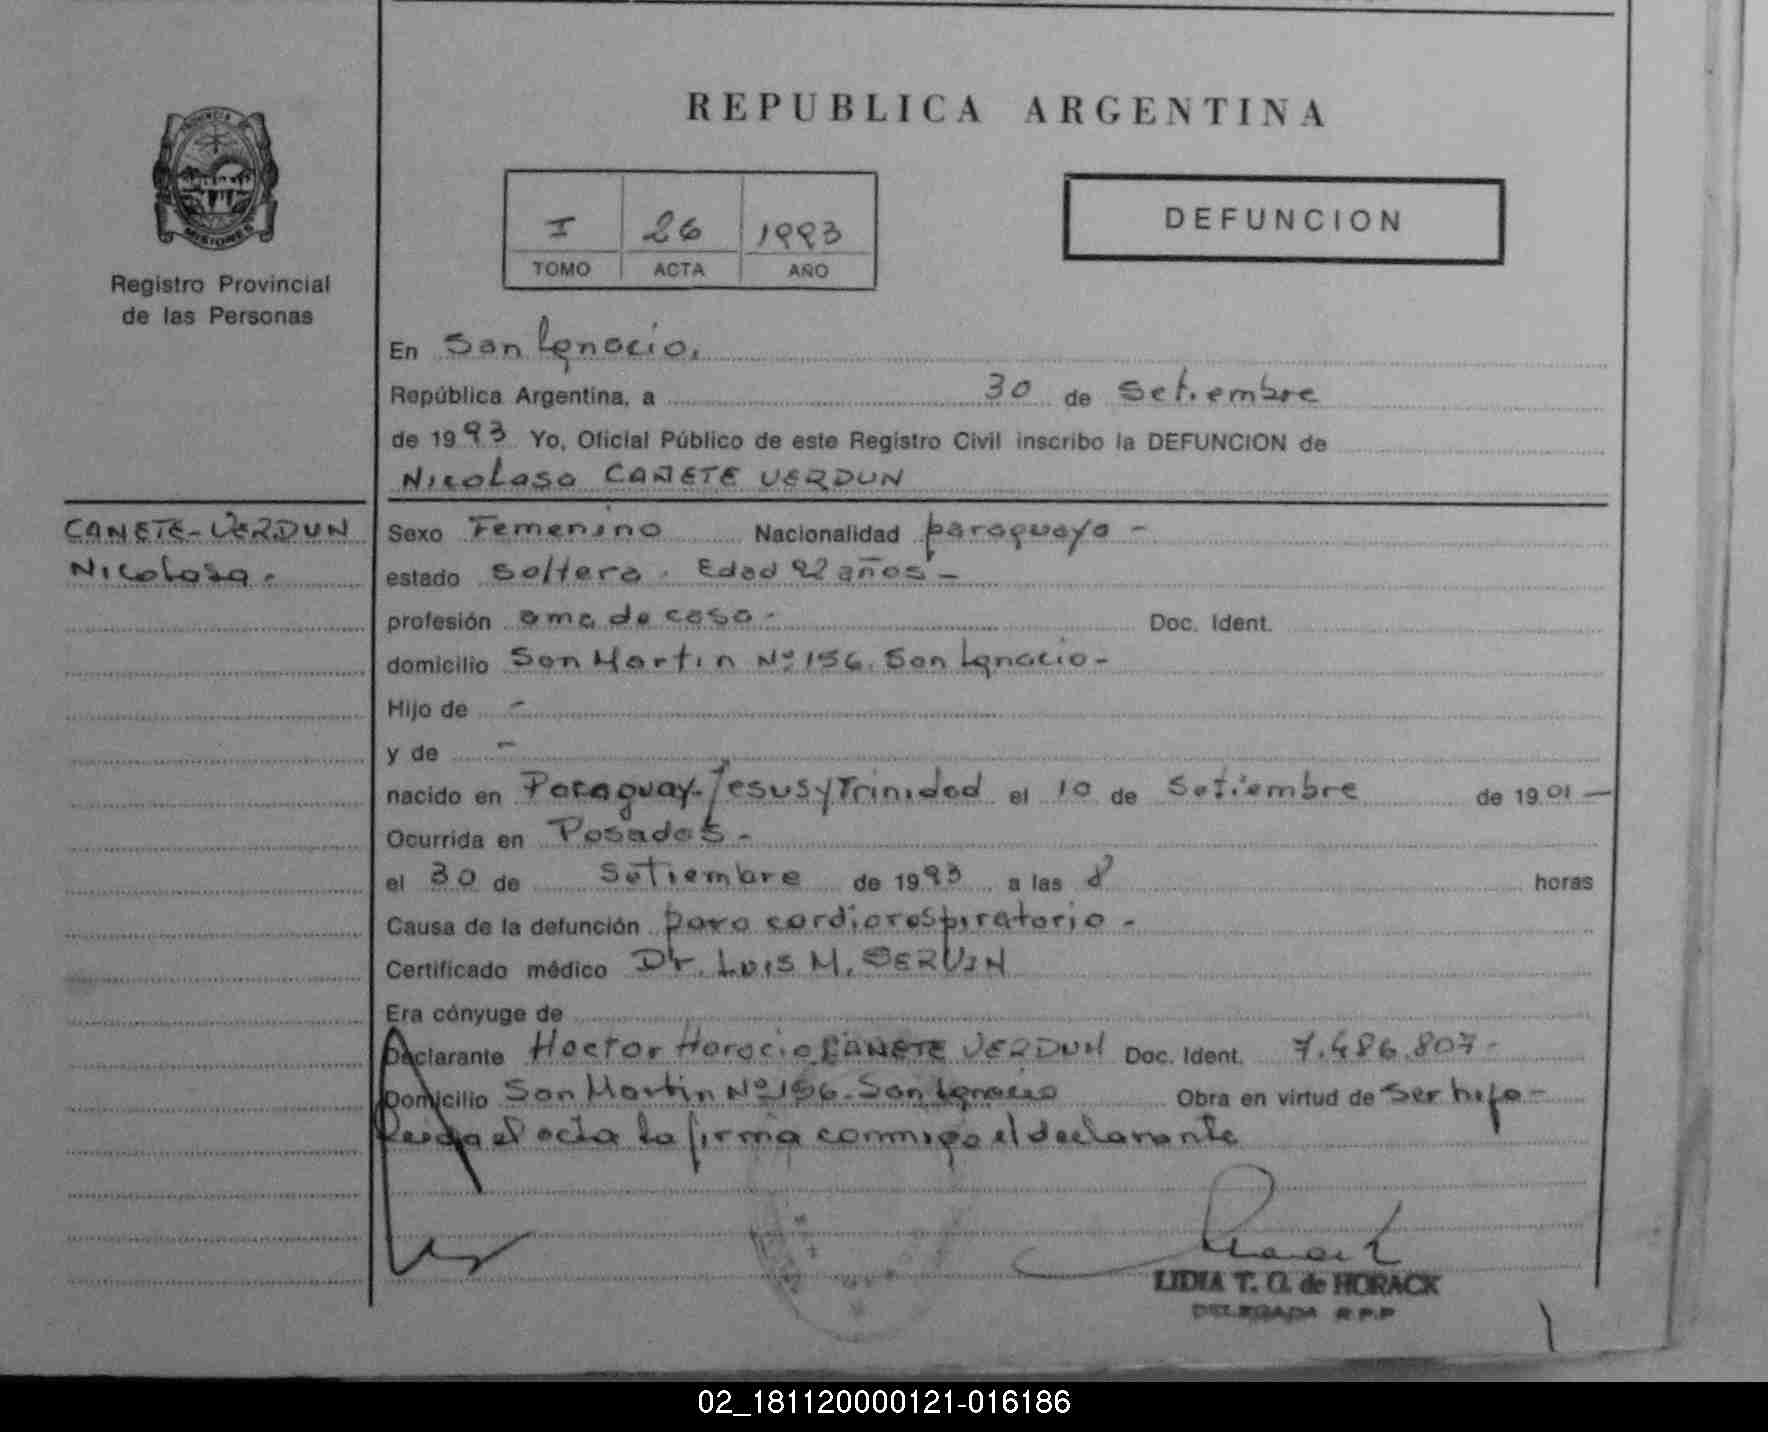 REPUBLICA ARGENTINA
PROVINCIA DE
MISIONES
Registro Provincial
de las Personas
I 26 1993
TOMO ACTA AÑO
DEFUNCION
En San Ignacio.
República Argentina, a 30 de Setiembre
de 1993 Yo, Oficial Público de este Registro Civil inscribo la DEFUNCION de
Nicolasa CAÑETE VERDUN
CANETE-VERDUN
Nicolasa.
Sexo Femenino Nacionalidad paraguaya -
estado soltera. Edad 92 años -
profesión ama de casa - Doc. Ident.
domicilio San Martin Nº 156. San Ignacio -
Hijo de -
y de -
nacido en Paraguay-Jesus y Trinidad el 10 de Setiembre de 1901 -
Ocurrida en Posadas -
el 30 de Setiembre de 1993 a las 8 horas
Causa de la defunción paro cardiorespiratorio -
Certificado médico Dr. Luis M. SERVIN
Era cónyuge de
Declarante Hector Horacio CAÑETE VERDUN Doc. Ident. 7.486.807-
Domicilio San Martin Nº 156- San Ignacio Obra en virtud de ser hijo -
Leida el acta la firma conmigo el declarante
LIDIA T. O. de HORACK
DELEGADA R.P.P
02_181120000121-016186